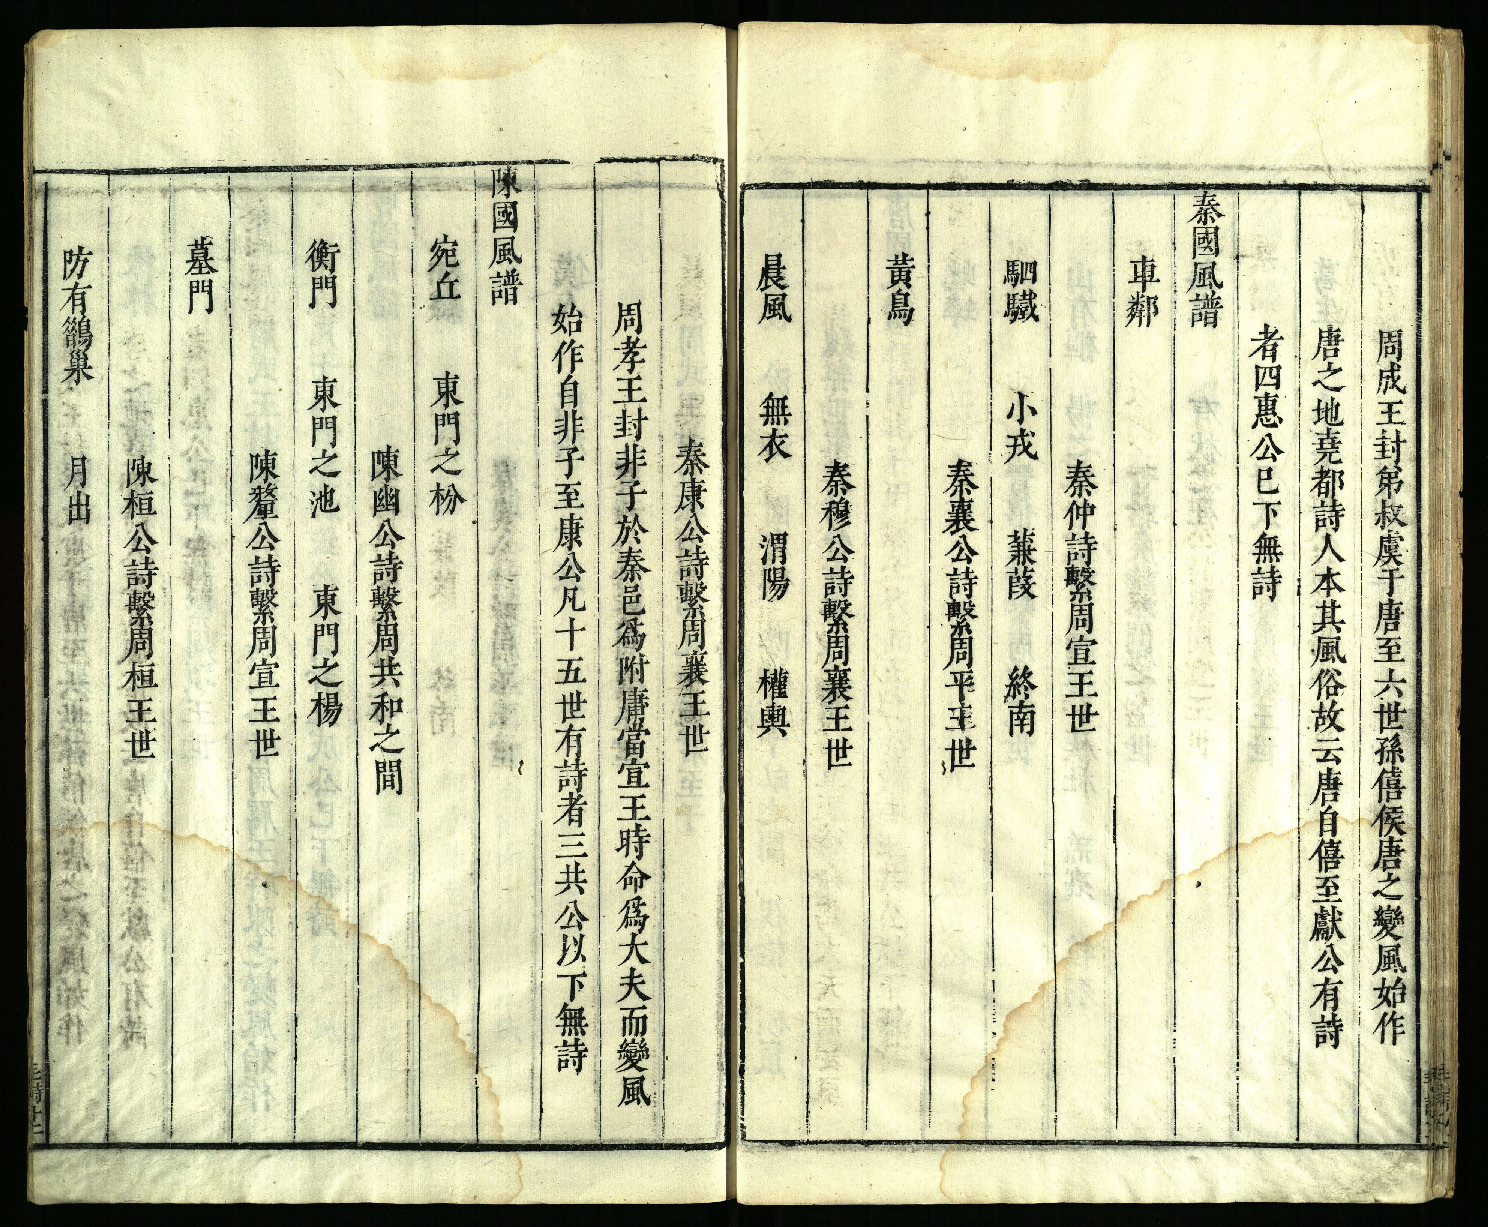 周成王封弟叔虞于唐至六世孫僖侯唐之變風始作
唐之地堯都詩人本其風俗故云唐自僖至獻公有詩
者四惠公已下無詩
秦國風譜
車鄰
秦仲詩繫周宣王世
駟驖　小戎　蒹葭　終南
秦襄公詩繫周平王世
黃鳥
秦穆公詩繫周襄王世
晨風　無衣　渭陽　權輿
秦康公詩繫周襄王世
周孝王封非子於秦邑爲附庸當宣王時命爲大夫而變風
始作自非子至康公凡十五世有詩者三共公以下無詩
陳國風譜
宛丘　東門之枌
陳幽公詩繫周共和之間
衡門　東門之池　東門之楊
陳釐公詩繫周宣王世
墓門
陳桓公詩繫周桓王世
防有鵲巢　月出